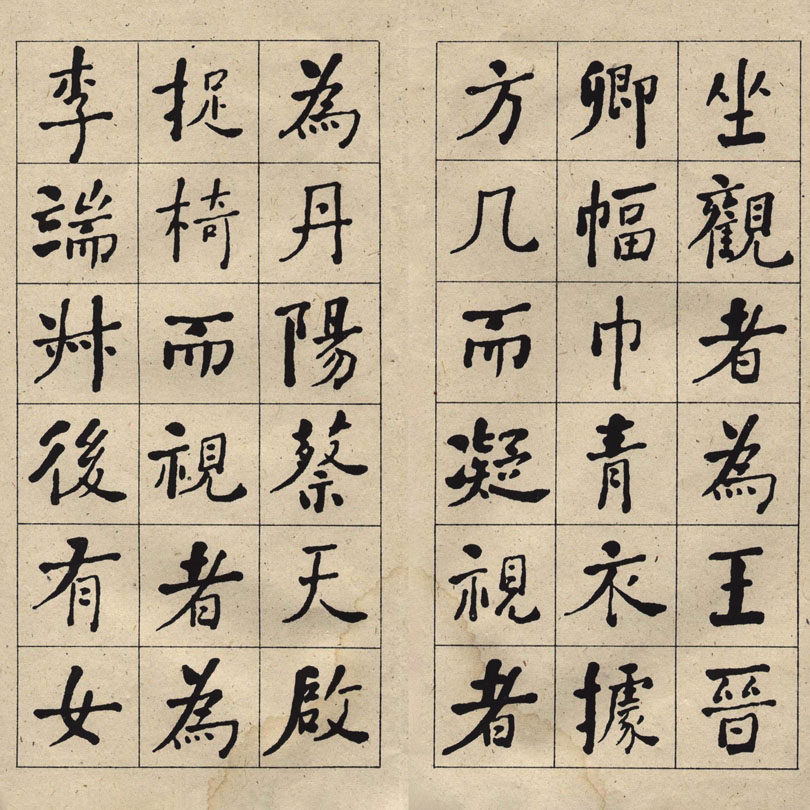 坐觀者為王晉
卿幅巾青衣據
方几而凝視者
為丹陽蔡天啟
捉椅而視者為
李端叔後有女